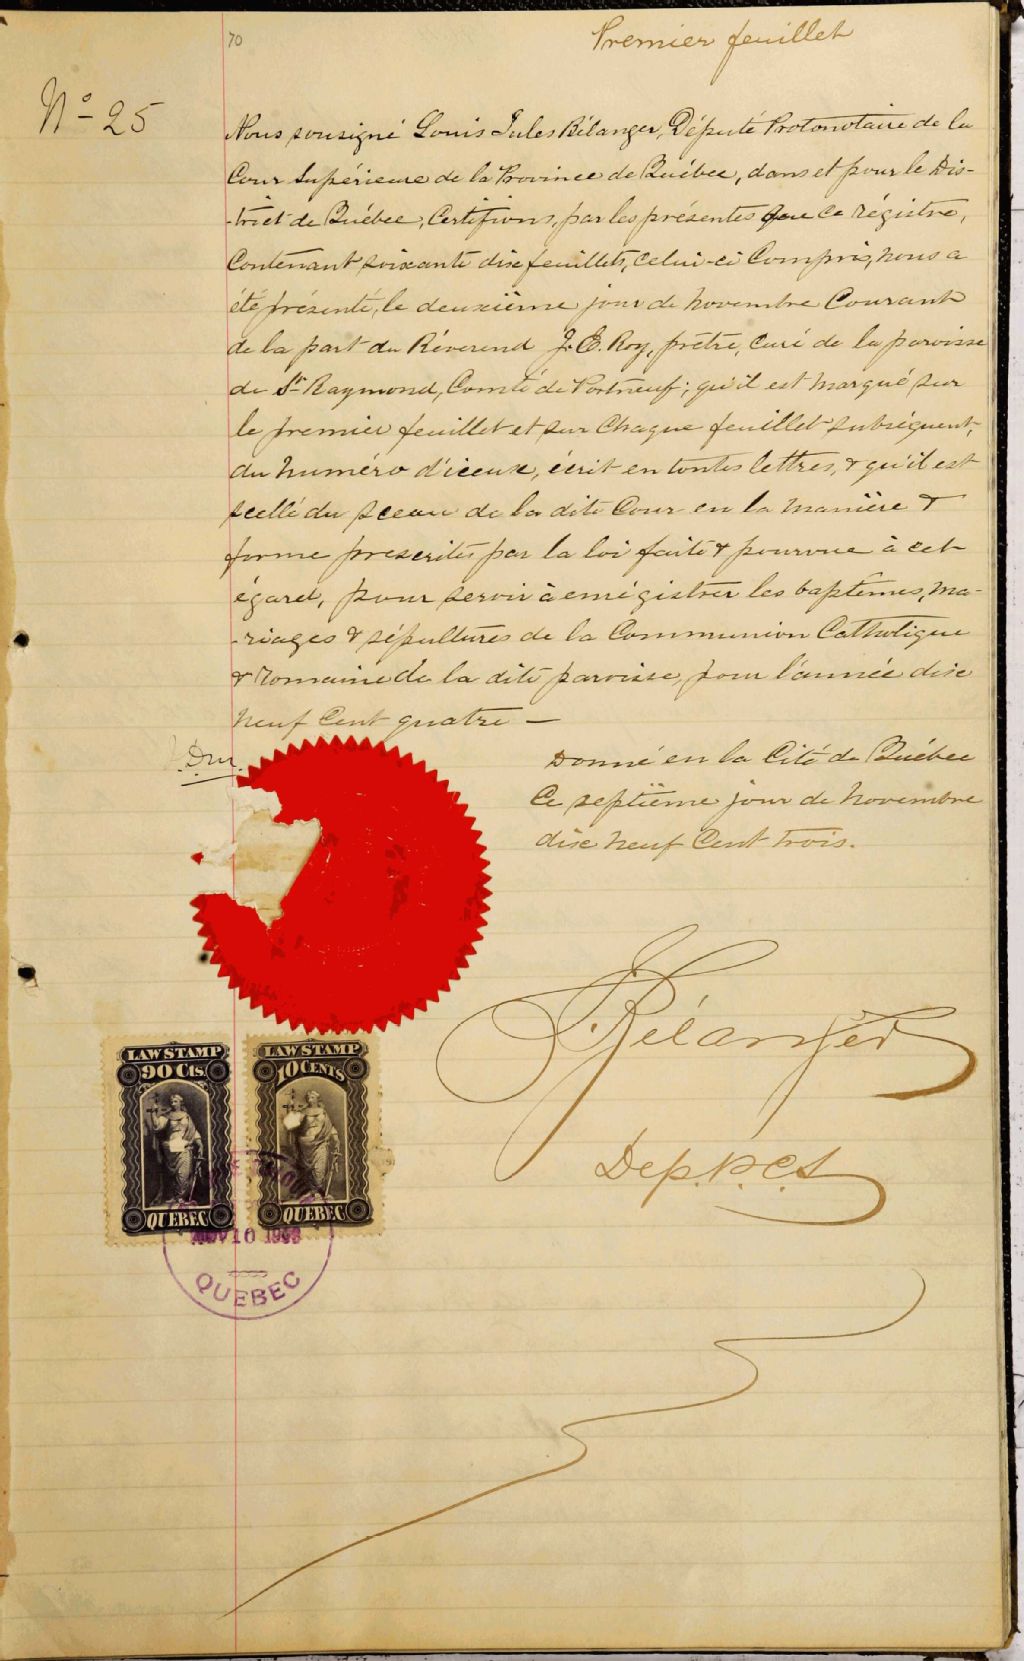 70
Premier feuillet
No 25
Nous soussigné Louis Jules Bélanger, Député Protonotaire de la
Cour Supérieure de la Province de Québec, dans et pour le Dis-
-trict de Québec, Certifions, par les présentes que ce régistre,
Contenant soixante dix feuillets, celui-ci Compris, nous a
été présenté, le deuxième jour de novembre Courant
de la part du Révérend J. E. Roy, prêtre, curé de la paroisse
de St Raymond, Comté de Portneuf; qu'il est marqué sur
le premier feuillet et sur chaque feuillet subséquent,
du numéro d'iceux, écrit en toutes lettres, & qu'il est
scellé du sceau de la dite Cour en la manière &
forme prescrites par la loi faite & pourvue à cet
égard, pour servir à enrégistrer les baptêmes, ma-
-riages & sépultures de la Communion Catholique
& romaine de la dite paroisse, pour l'année dix
neuf Cent quatre —
Donné en la Cité de Québec
Ce septième jour de novembre
dix neuf Cent trois.
Bélanger
Dep. P.C.S.
LAW STAMP
90 Cts.
QUEBEC
LAW STAMP
10 CENTS
QUEBEC
NOV 10 1903
QUEBEC